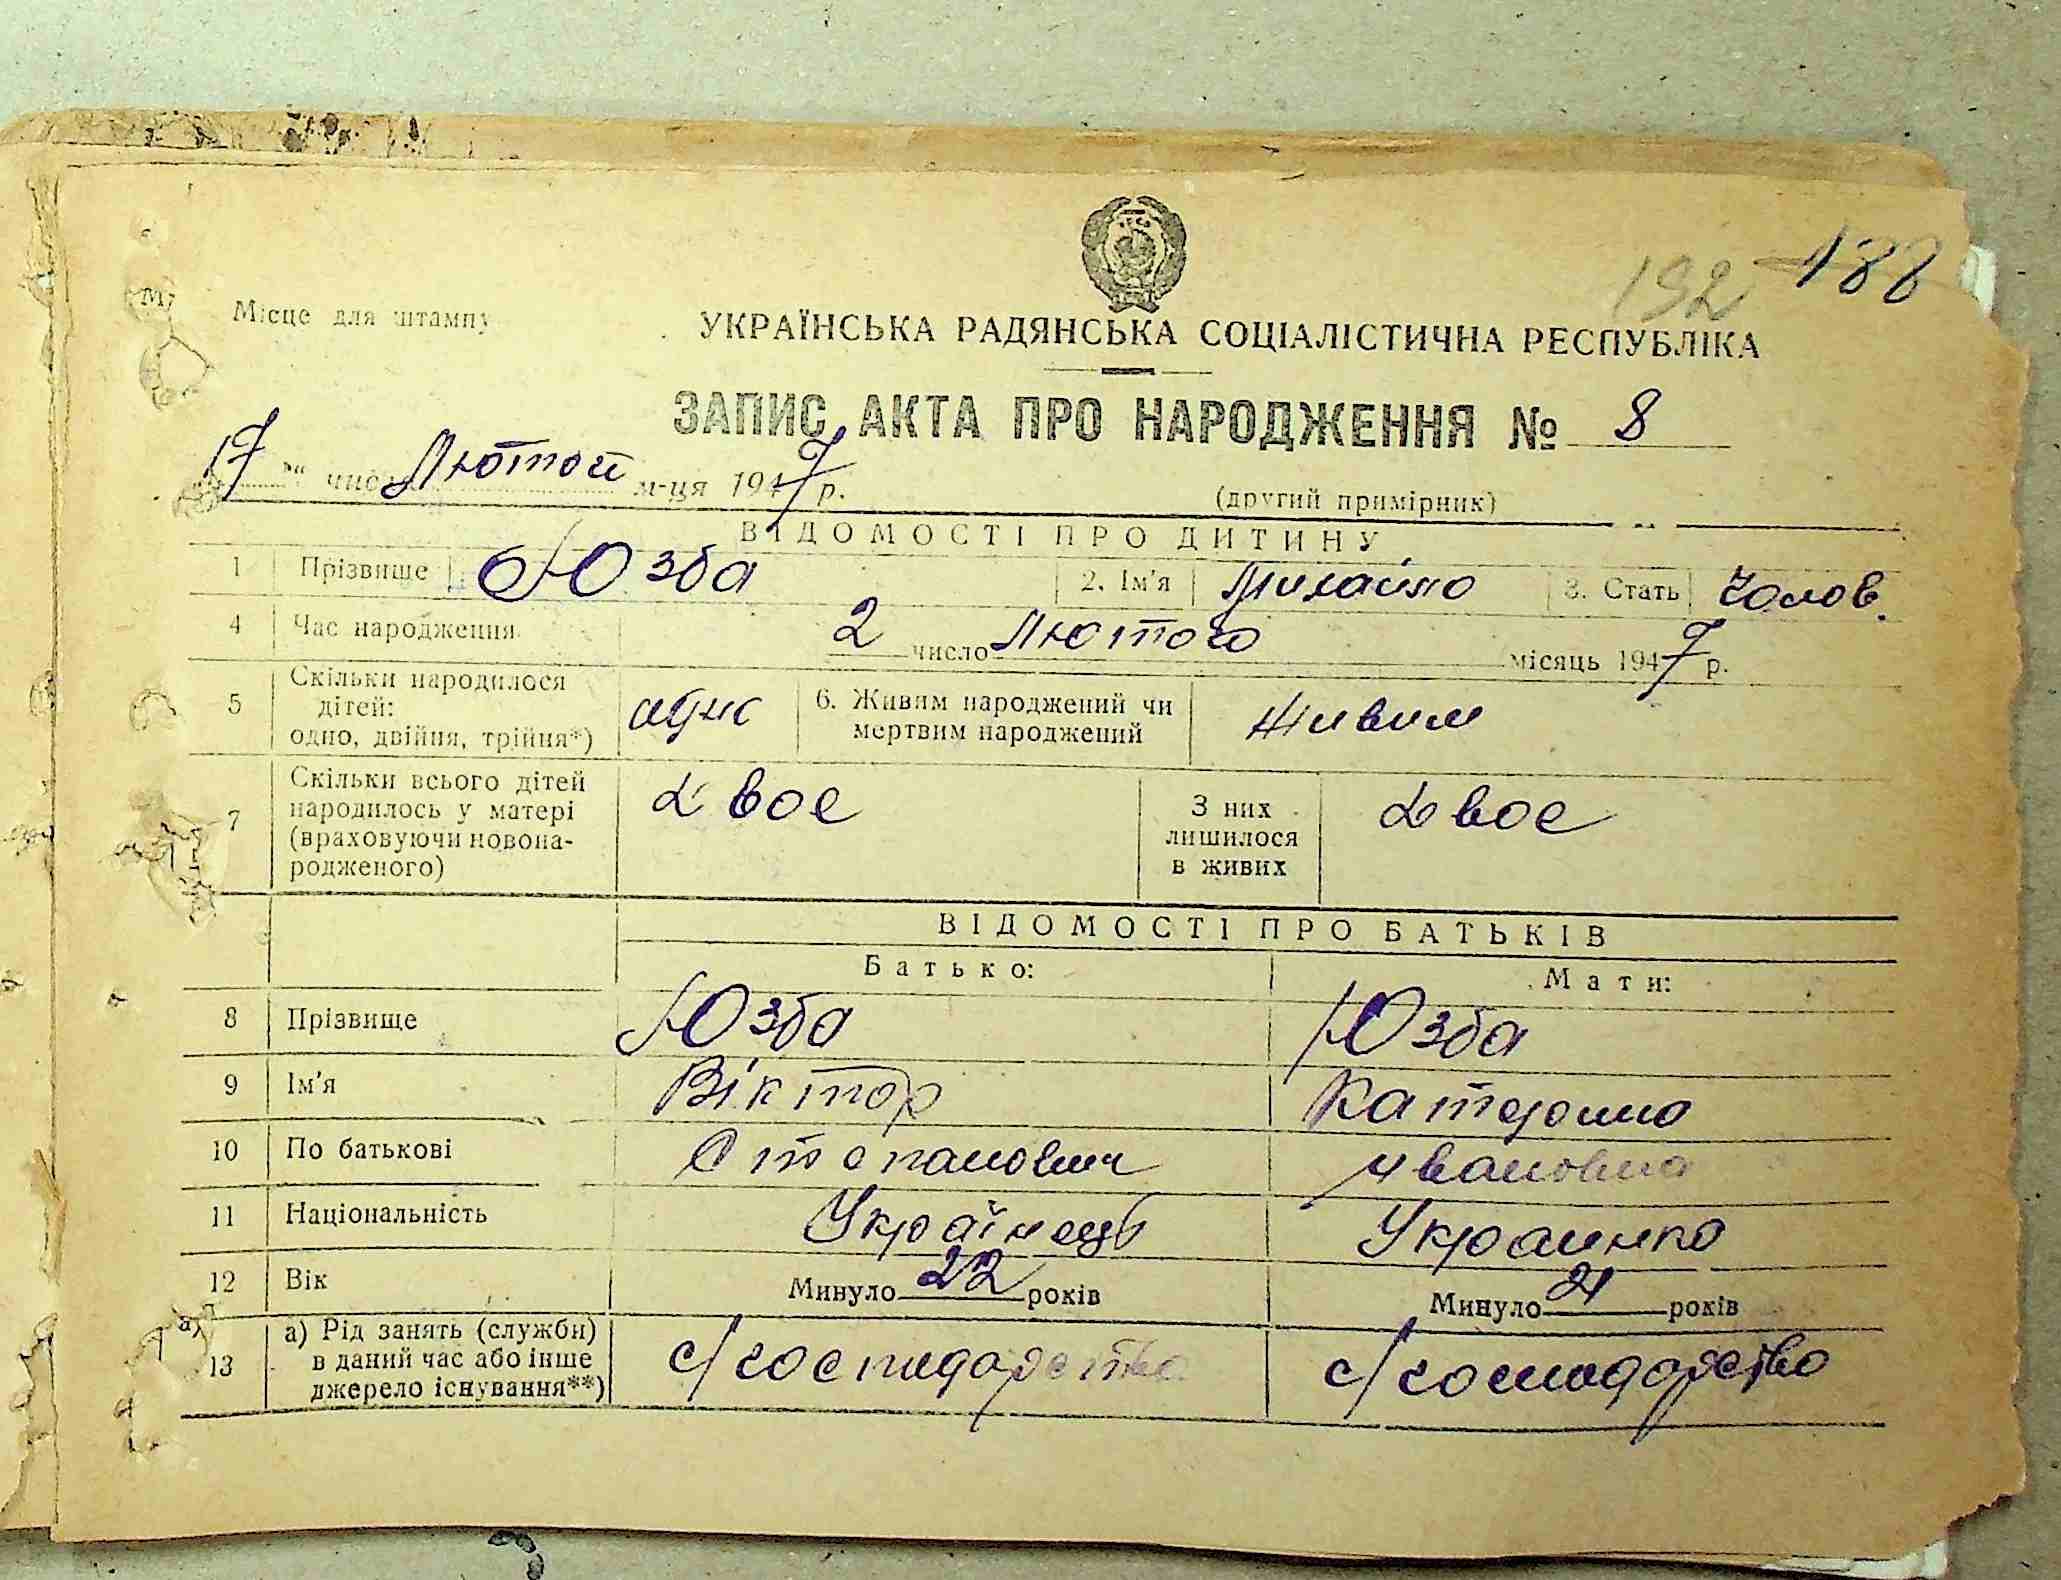 192 188
Місце для штампу
УКРАЇНСЬКА РАДЯНСЬКА СОЦІАЛІСТИЧНА РЕСПУБЛІКА
ЗАПИС АКТА ПРО НАРОДЖЕННЯ № 8
17 " число Лютой м-ця 1947 р.
(другий примірник)
ВІДОМОСТІ ПРО ДИТИНУ
1 Прізвище Юзба 2. Ім'я Михайло 3. Стать Чолов.
4 Час народження 2 число Лютого місяць 1947 р.
5 Скільки народилося дітей: одно, двійня, трійня*) 6. Живим народжений чи мертвим народжений Живим
7 Скільки всього дітей народилось у матері (враховуючи новонародженого) Двое З них лишилося в живих Двое
ВІДОМОСТІ ПРО БАТЬКІВ
Батько: Мати:
8 Прізвище Юзба Юзба
9 Ім'я Віктор Катерина
10 По батькові Степанович Ивановна
11 Національність Українець Украинка
12 Вік Минуло 22 років Минуло 21 років
а)
13 а) Рід занять (служби) в даний час або інше джерело існування**) с/господарство с/господарство